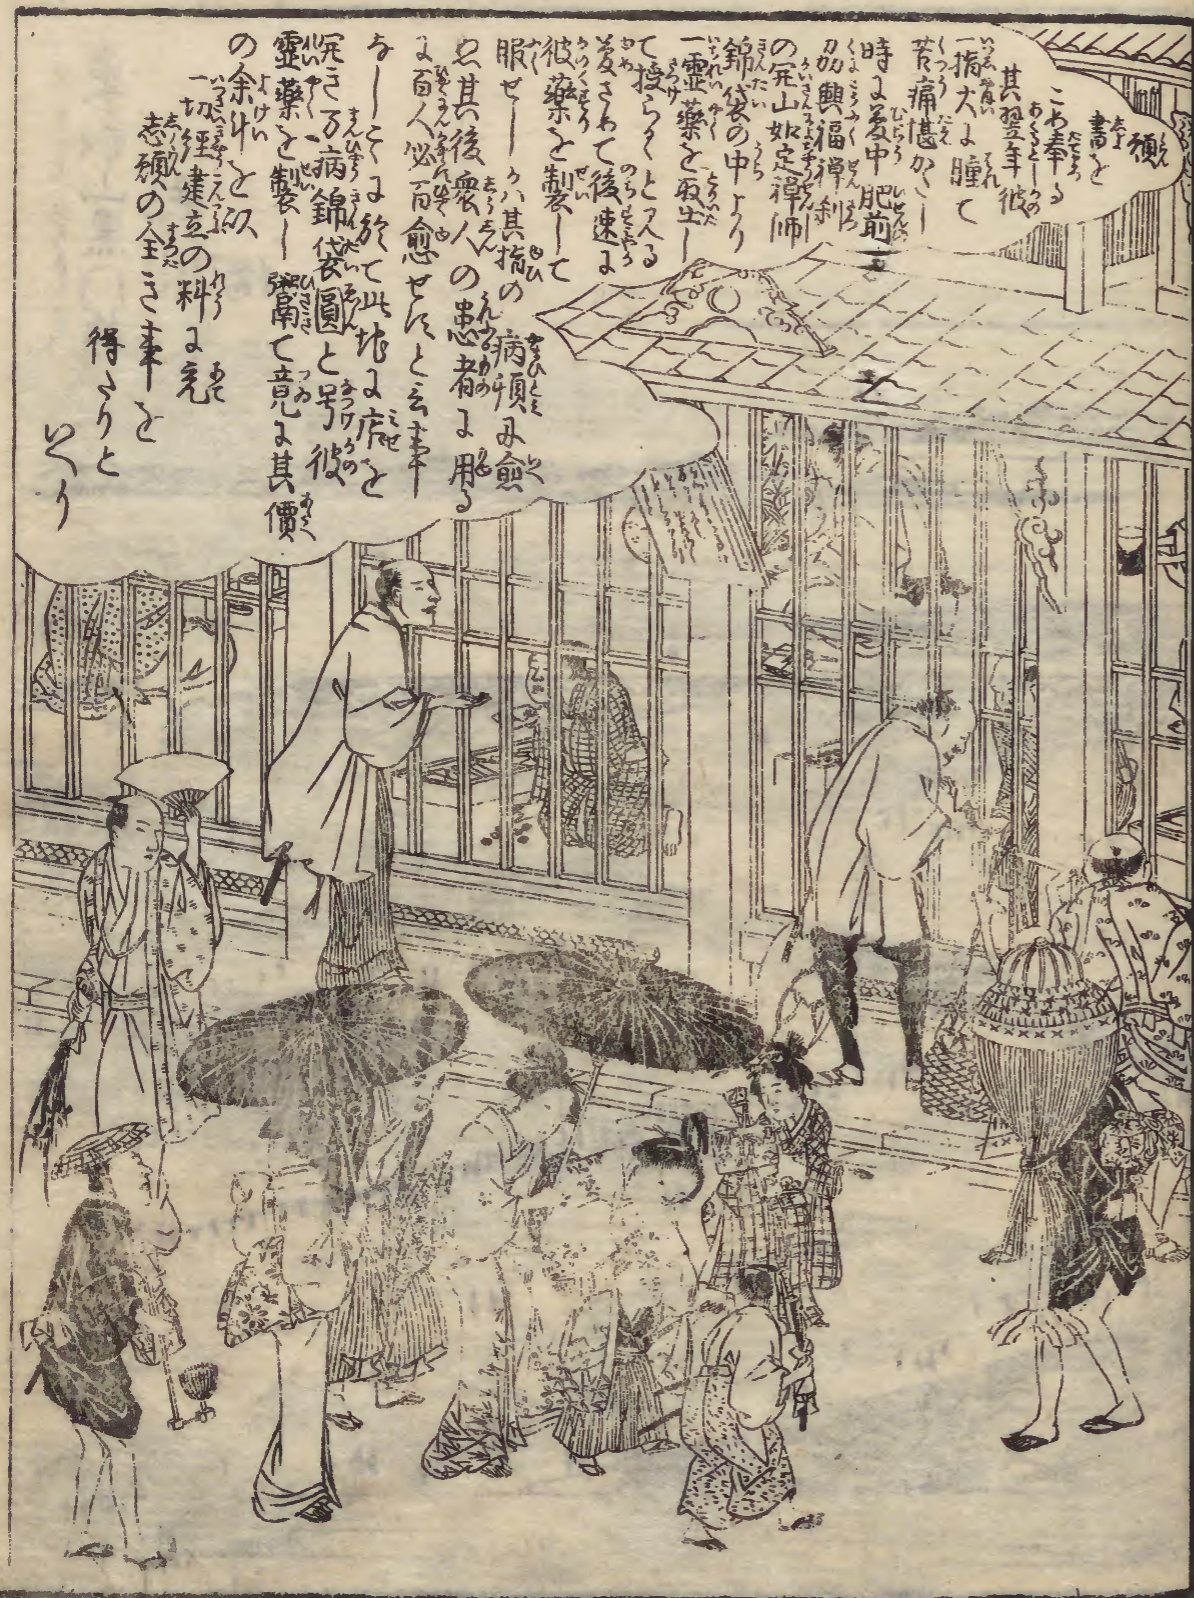 願
書を
こめ奉る
其翌年彼
一指大に腫て
苦痛堪がたし
時に夢中肥前
刕興福禅刹
の開山如定禅師
錦袋の中より
一霊薬を取出し
て授らるゝと見る
夢さめて後速に
彼薬を製して
服せしかハ其指の病頓に愈
ぬ其後衆人の患者に用る
に百人必百愈せずと云事
なしこゝに於て此地に店を
開き万病錦袋圓と号彼
霊薬を製し鬻て竟に其價
の余計を以
一切経建立の料に充
志願の全き事を
得たりと
いへり